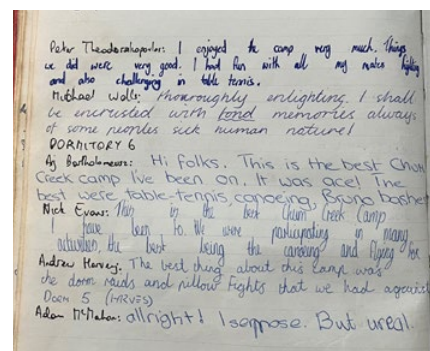 Peter Theodorakopoulos: I enjoyed the camp very much. Things
we did were very good. I had fun with all my mates fighting
and also challenging in table tennis.
Michael Walls: Thoroughly enlighting. I shall
be encrusted with fond memories always
of some peoples sick human nature!
DORMITORY 6
Aj Bartholomeus: Hi folks. This is the best Chum
Creek camp I've been on. It was ace! The
best were table-tennis, canoeing, Bruno bashet
Nick Evans: This is the best Chum Creek Camp
I have been to. We were participating in many
activities, the best being the canoeing and flying fox
Andrew Harvey: The best thing about this camp was
the dorm raids and pillow fights that we had against
Dorm 5 (MARVES)
Adam McMahon: allright! I seppose. But ureal.